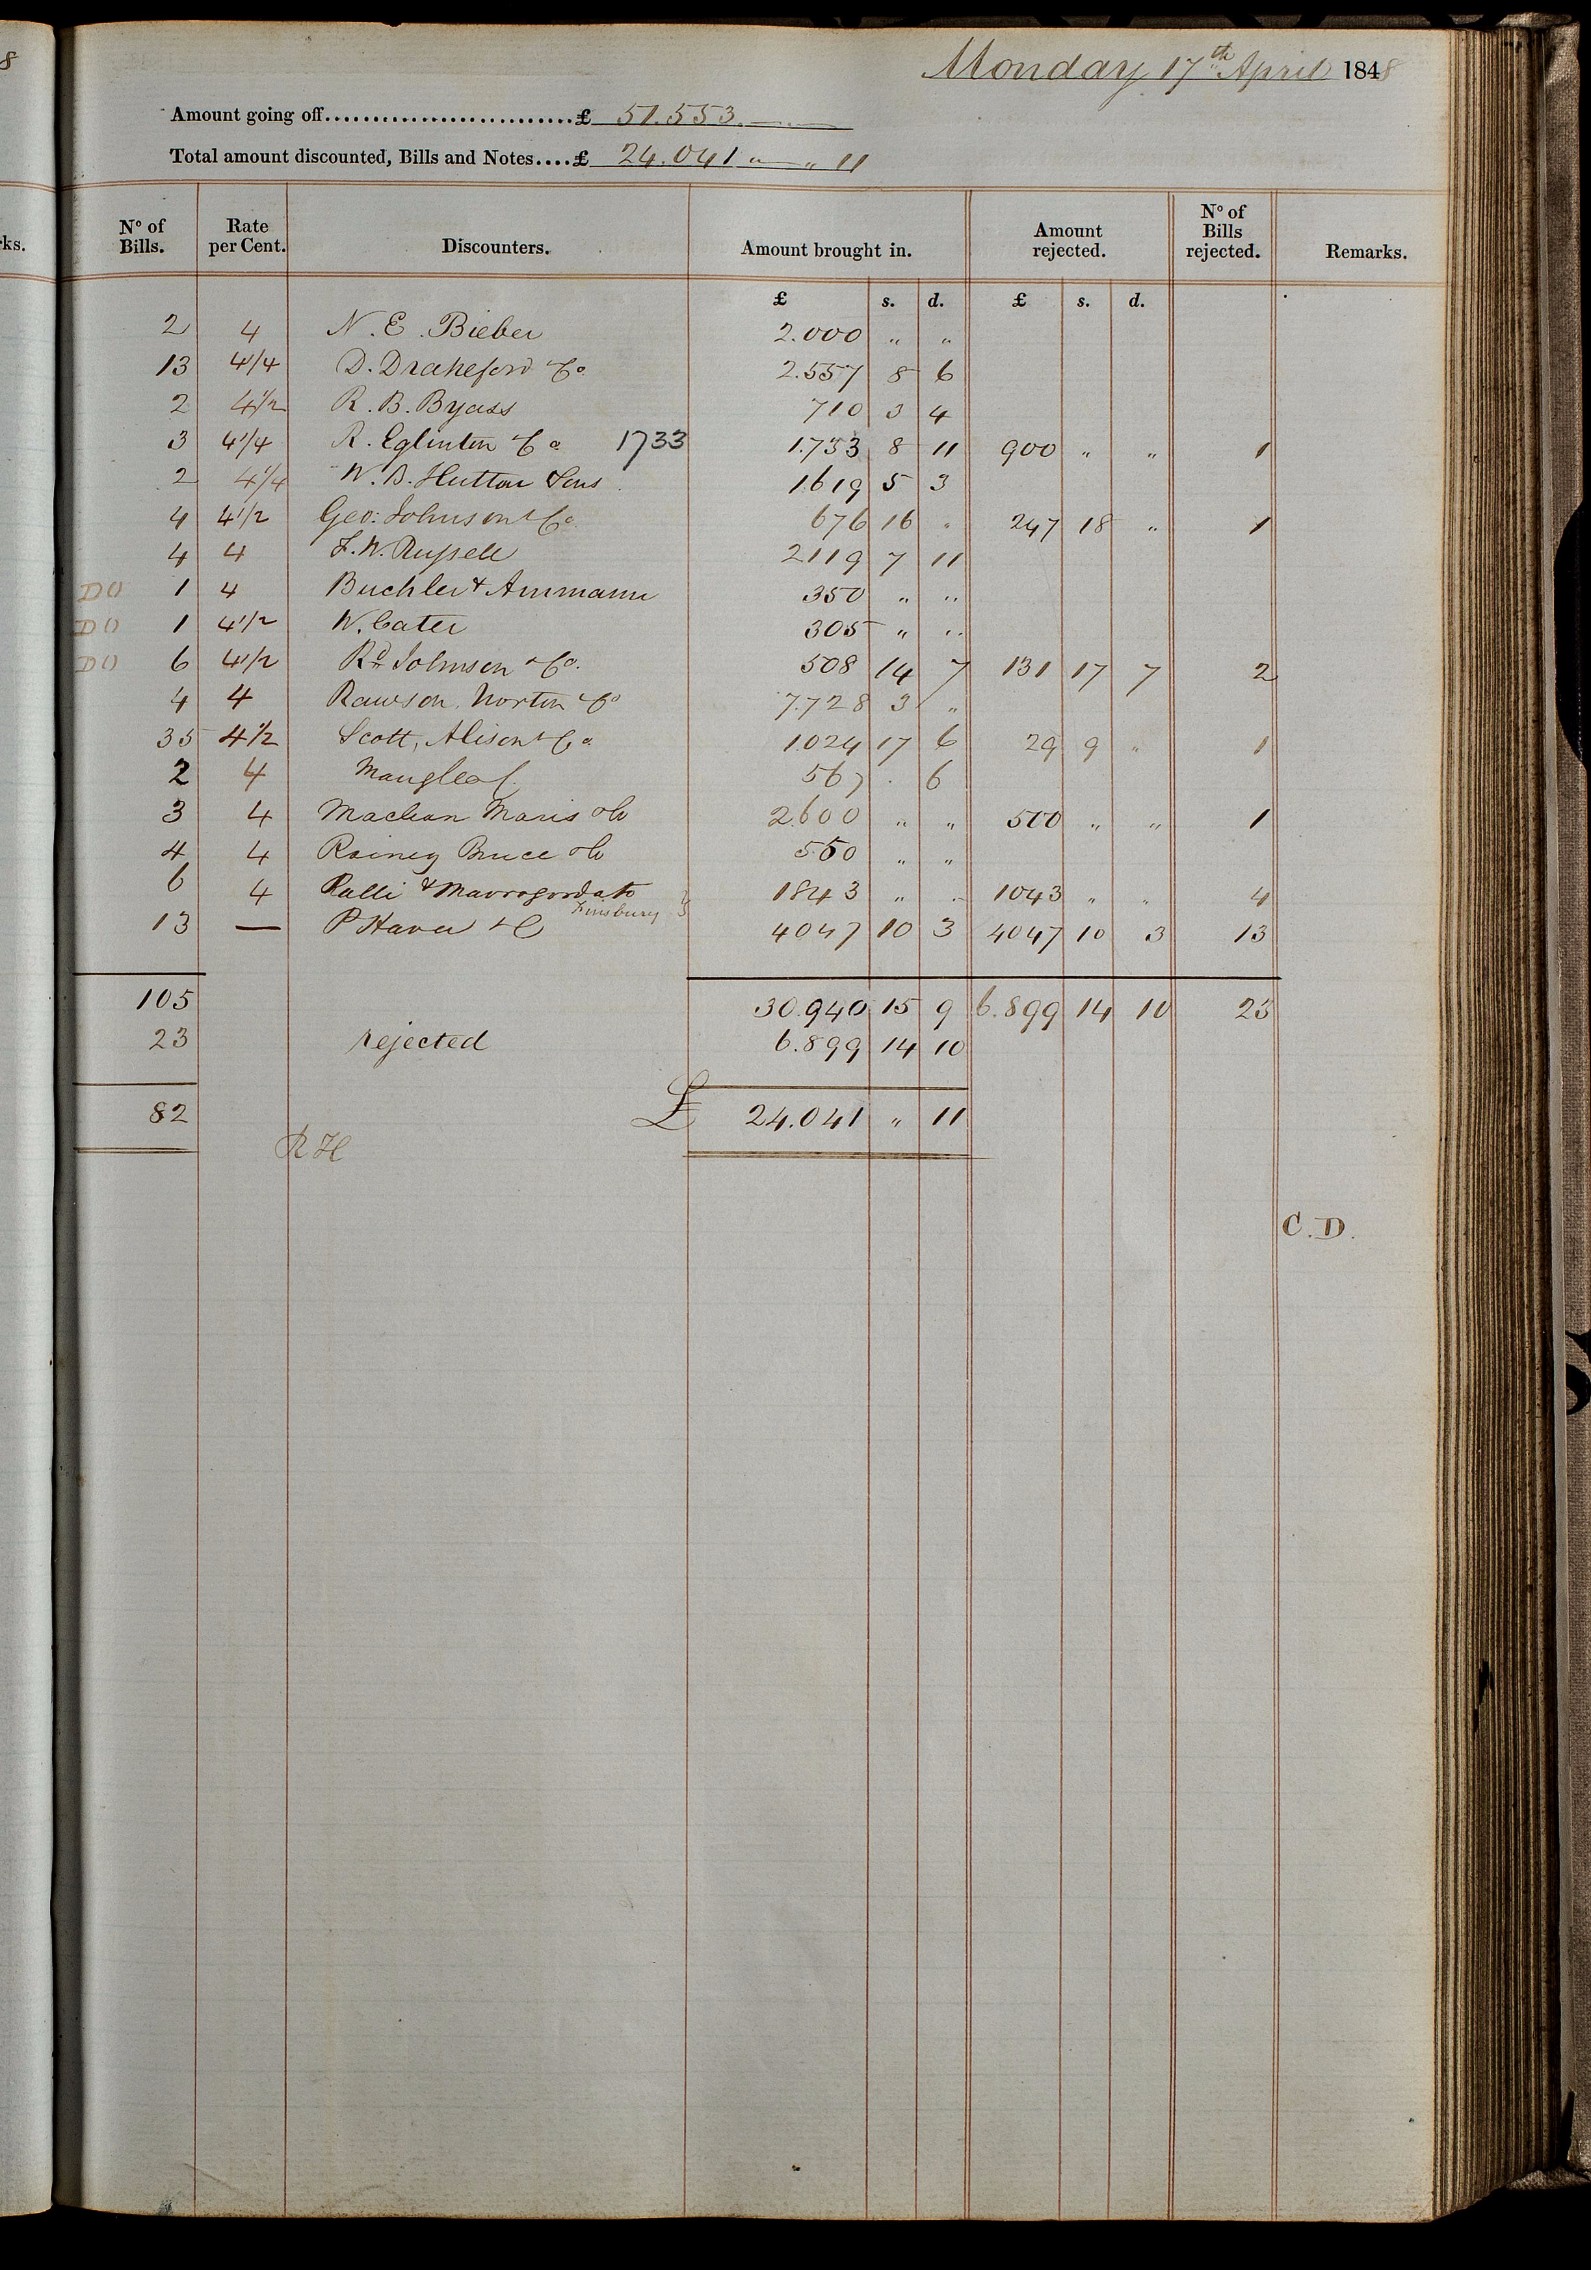 8
ks.
Monday 17th April 1848
Amount going off........................£ 51.553. — . —
Total amount discounted, Bills and Notes....£ 24.041 " — " 11
No of Bills. Rate per Cent. Discounters. Amount brought in. Amount rejected. No of Bills rejected. Remarks.
£ s. d. £ s. d.
2 4 N. E. Bieber 2.000 " "
13 4 1/4 D. Drakeford & Co. 2.557 8 6
2 4 1/2 R. B. Byass 710 3 4
3 4 1/4 R. Eglinton & Co 1733 1.733 8 11 900 " " 1
2 4 1/4 W. B. Hutton & Sons 1619 5 3
4 4 1/2 Geo: Johnson & Co 676 16 " 247 18 " 1
4 4 J. W. Russell 2119 7 11
DO 1 4 Buchler & Ammann 350 " "
DO 1 4 1/2 W. Cater 305 " "
DO 6 4 1/2 Rd Johnson & Co. 508 14 7 131 17 7 2
4 4 Rawson, Norton & Co 7.728 3 "
35 4 1/2 Scott, Alison & Co 1024 17 6 29 9 " 1
2 4 567 . 6
3 4 Maclean Maris & Co 2.600 " " 500 " " 1
4 4 Rainey Bruce & Co 550 " "
6 4 Ralli & Mavrogordato 1843 " " 1043 " " 4
Finsbury Sq
13 — P Hava & C 4047 10 3 4047 10 3 13
105 30.940 15 9 6.899 14 10 23
23 rejected 6.899 14 10
82 £ 24.041 " 11
R H
C. D.